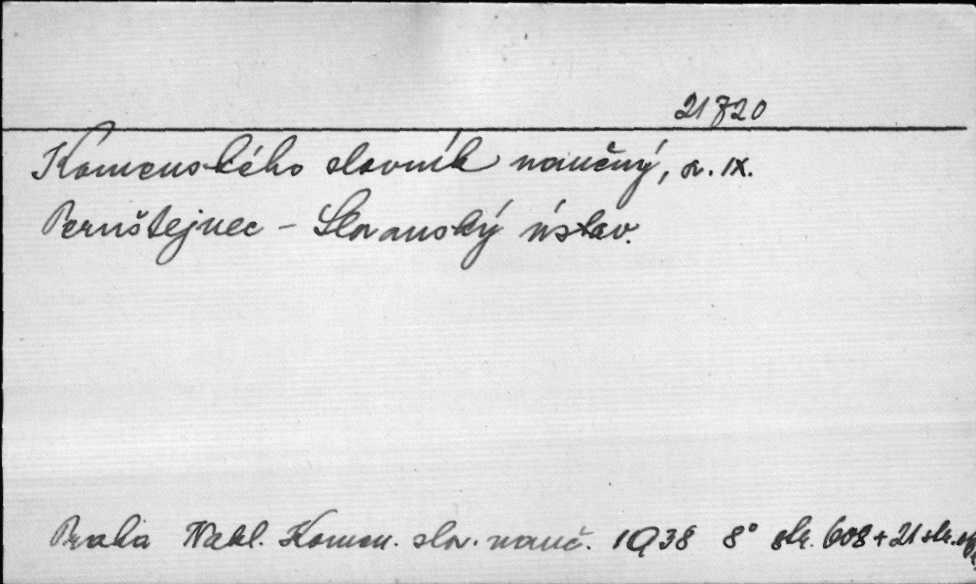 21720
Komenského slovník naučný, sv. IX.
Pernštejnec - Slovanský ústav.
Praha Nakl. Komen. slov. nauč. 1938 8° str. 608 + 21 str.